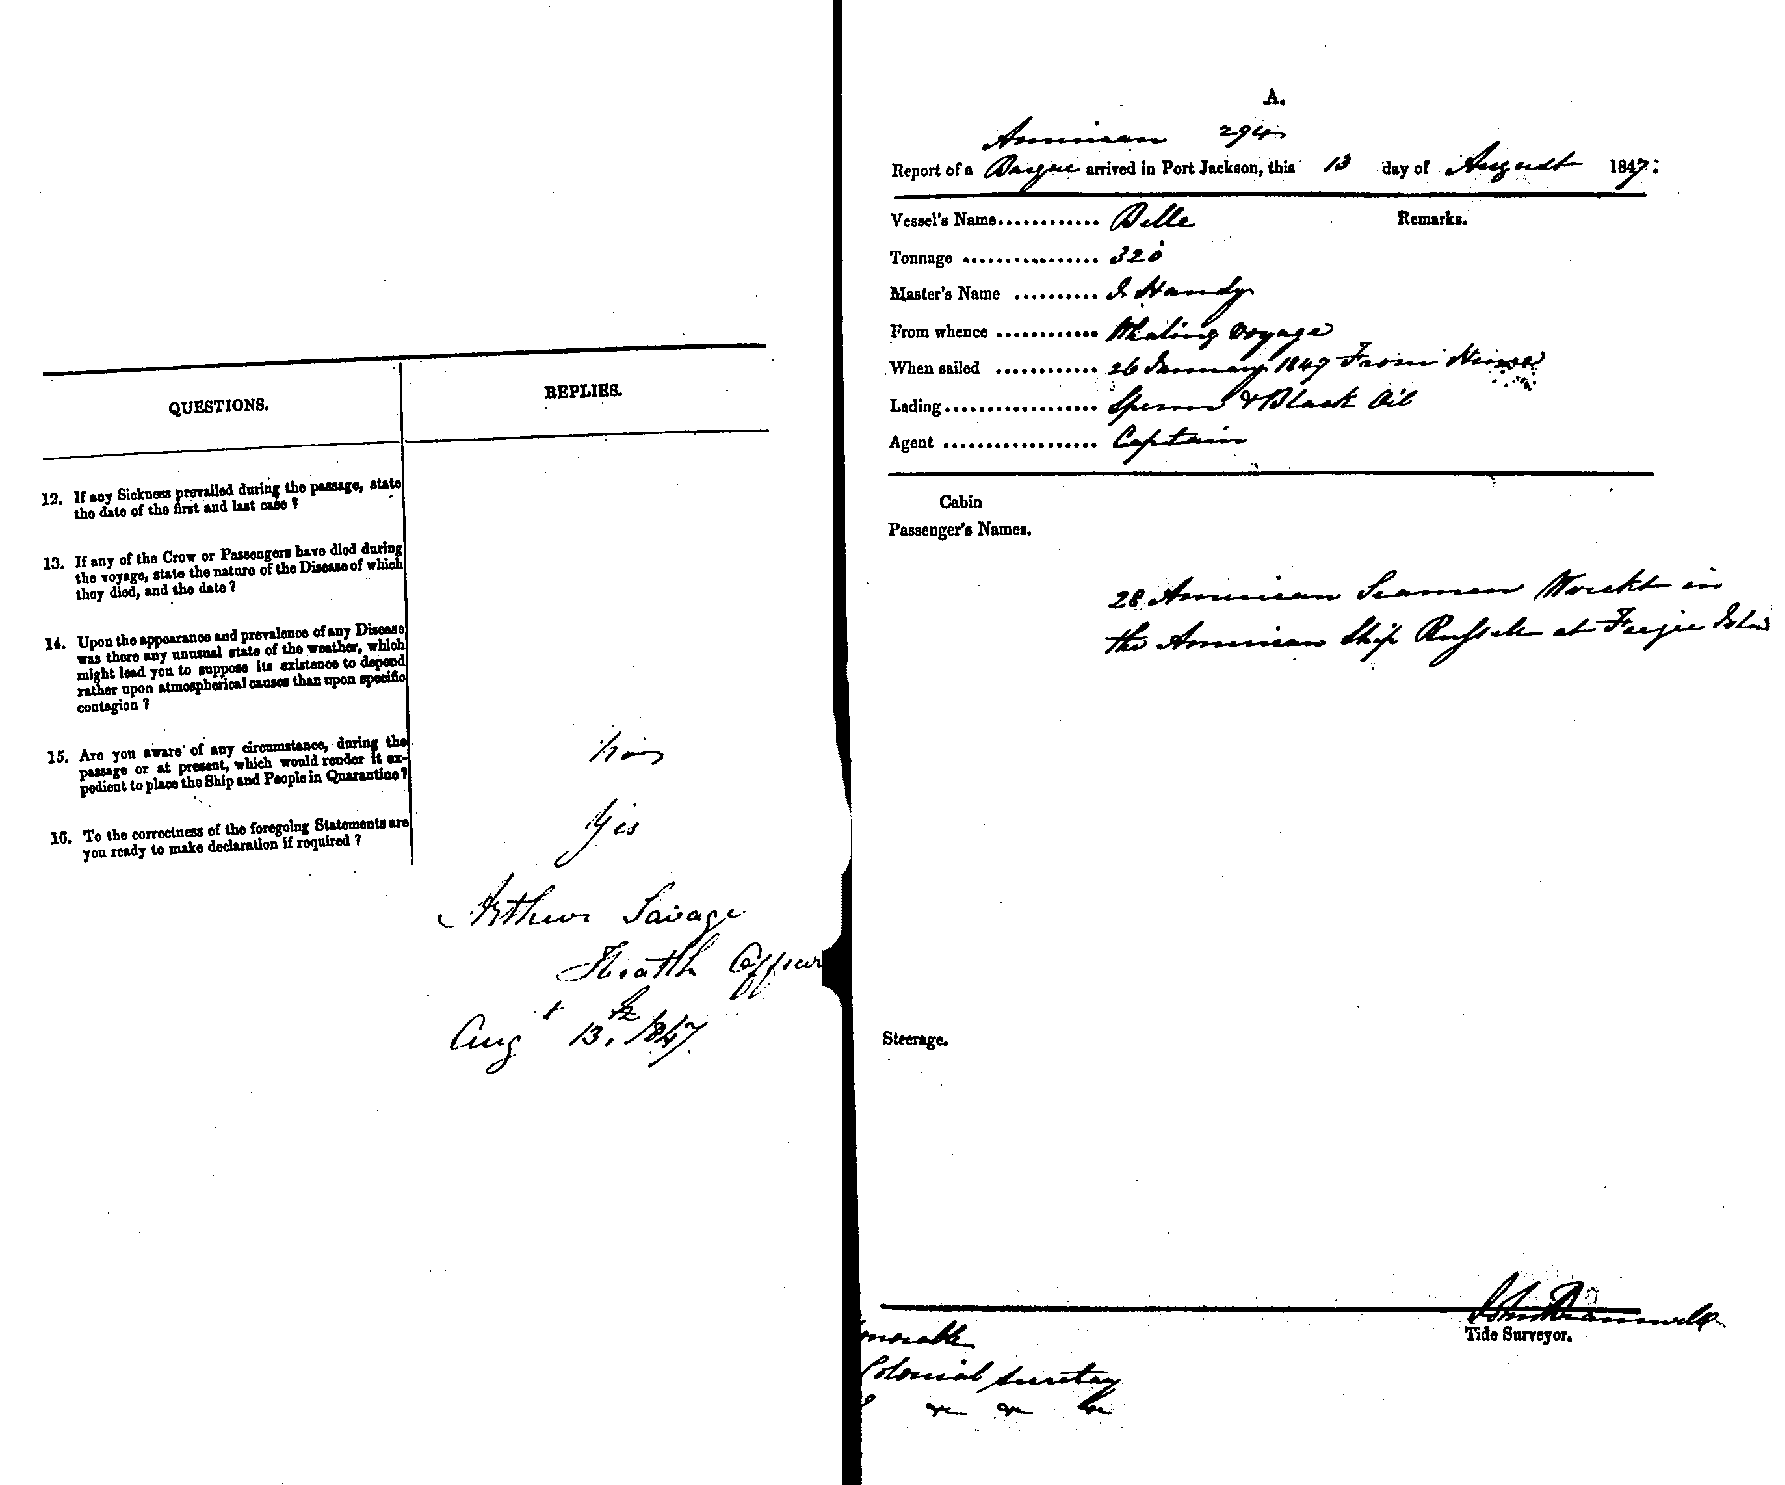 QUESTIONS.
REPLIES.
12. If any Sickness prevailed during the passage, state
the date of the first and last case ?
13. If any of the Crew or Passengers have died during
the voyage, state the nature of the Disease of which
they died, and the date ?
14. Upon the appearance and prevalence of any Disease
was there any unusual state of the weather, which
might lead you to suppose its existence to depend
rather upon atmospherical causes than upon specific
contagion ?
15. Are you aware of any circumstance, during the
passage or at present, which would render it ex-
pedient to place the Ship and People in Quarantine ?
16. To the correctness of the foregoing Statements are
you ready to make declaration if required ?
Yes
Arthur Savage
Health Officer
Augt 13th 1847
A.
American 294
Report of a Barque arrived in Port Jackson, this 13 day of August 1847:
Vessel's Name............ Belle
Remarks.
Tonnage ................ 320
Master's Name .......... Handy
From whence ............ Whaling Voyage
When sailed ............ 26 January 1847 From
Lading.................. Sperm & Black Oil
Agent .................. Captain
Cabin
Passenger's Names.
28 American Seamen Wreckt in
the American Ship Russell at Feejee
Steerage.
John Bramwell
Tide Surveyor.
Colonial Secretary
&c &c &c